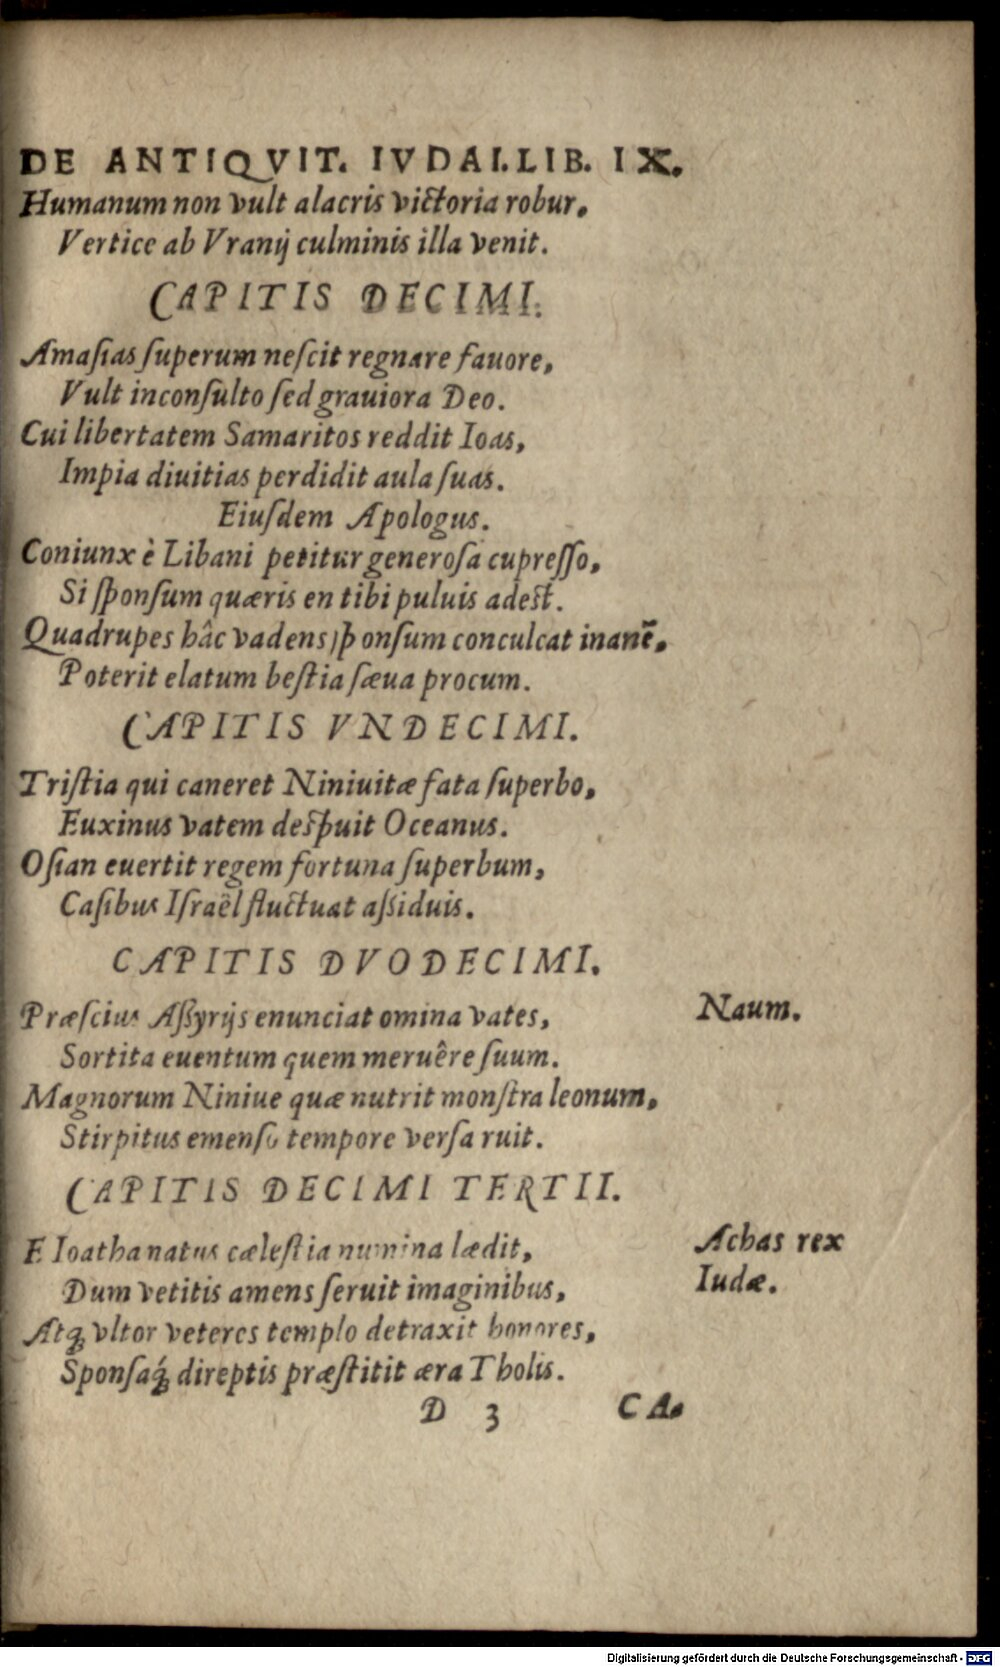 DE ANTIQVIT. IVDAI. LIB. IX.
Humanum non vult alacris victoria robur,
Vertice ab Vranij culminis illa venit.
CAPITIS DECIMI.
Amaſias ſuperum neſcit regnare fauore,
Vult inconſulto ſed grauiora Deo.
Cui libertatem Samaritos reddit Ioas,
Impia diuitias perdidit aula ſuas.
Eiuſdem Apologus.
Coniunx è Libani petitur generoſa cupreſſo,
Si ſponſum quæris en tibi puluis adeſt.
Quadrupes hâc vadens ſponſum conculcat inanē,
Poterit elatum beſtia ſæua procum.
CAPITIS VNDECIMI.
Triſtia qui caneret Niniuitæ fata ſuperbo,
Euxinus vatem deſpuit Oceanus.
Oſian euertit regem fortuna ſuperbum,
Caſibus Iſraël fluctuat aſsiduis.
CAPITIS DVODECIMI.
Præſcius Aſſyrijs enunciat omina vates,
Naum.
Sortita euentum quem meruêre ſuum.
Magnorum Niniue quæ nutrit monſtra leonum,
Stirpitus emenſo tempore verſa ruit.
CAPITIS DECIMI TERTII.
E Ioatha natus cæleſtia numina lædit,
Achas rex
Iudæ.
Dum vetitis amens ſeruit imaginibus,
Atq́; vltor veteres templo detraxit honores,
Sponſaq́; direptis præſtitit æra Tholis.
D 3
CA-
Digitalisierung gefördert durch die Deutsche Forschungsgemeinschaft - DFG